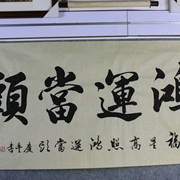 鴻運當頭
福星高照鴻運當头